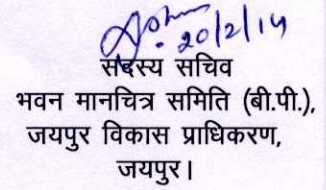 20/2/14
सदस्य सचिव
भवन मानचित्र समिति (बी.पी.),
जयपुर विकास प्राधिकरण,
जयपुर।